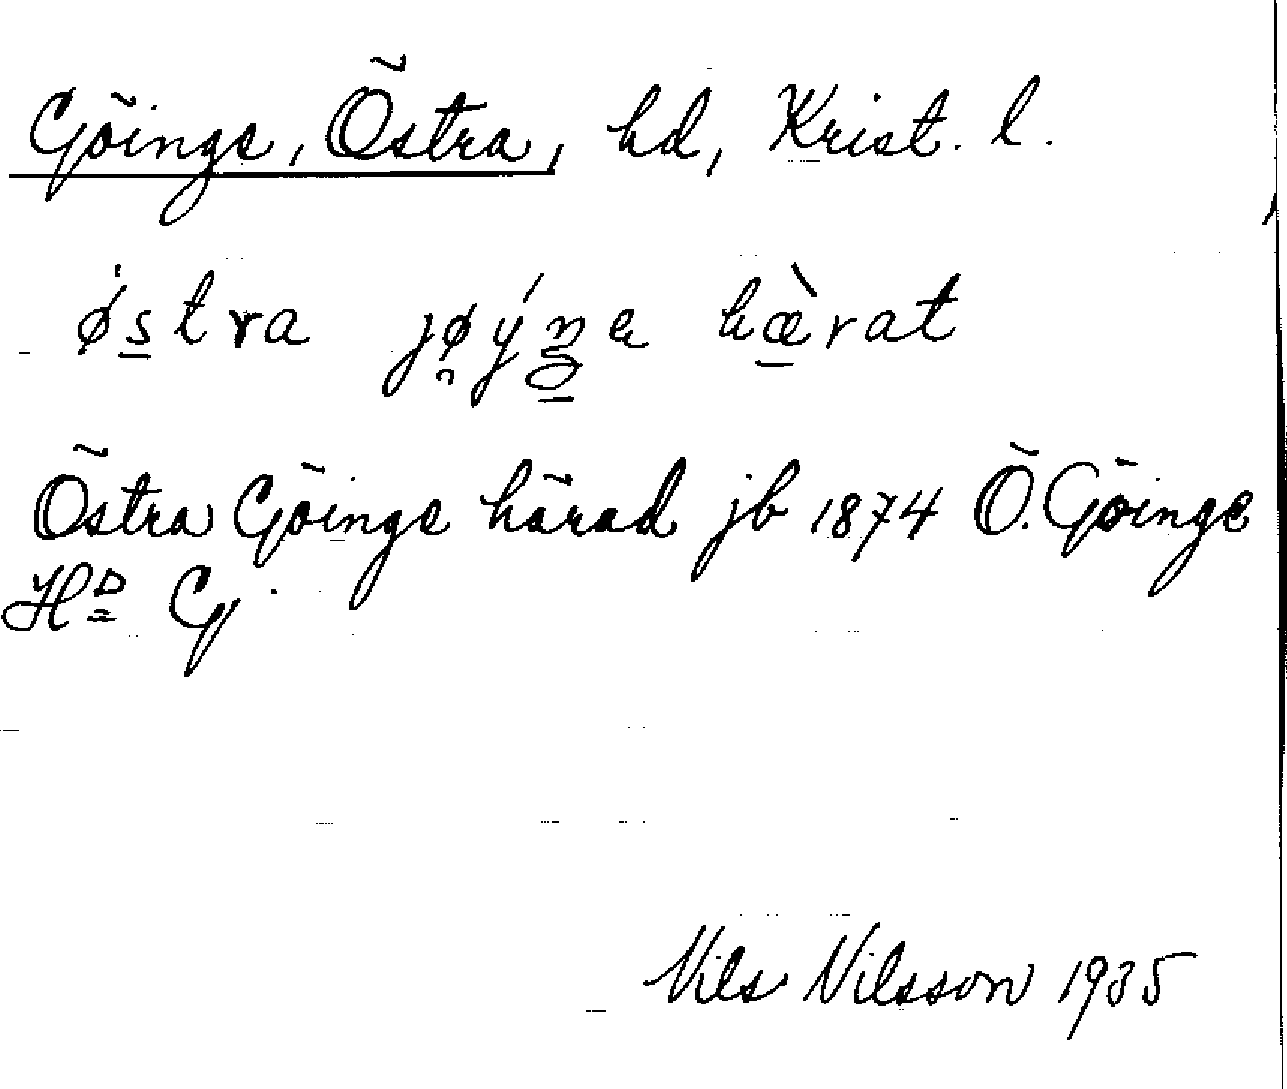 Göinge, Östra, hd, Krist. l.
østra jøyŋe hærat
Östra Göinge härad jb 1874 Ö. Göinge
HD G
Nils Nilsson 1935